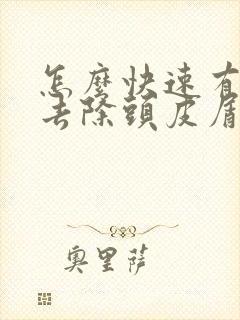 怎麼快速有
去除頭皮屑
奧里萨